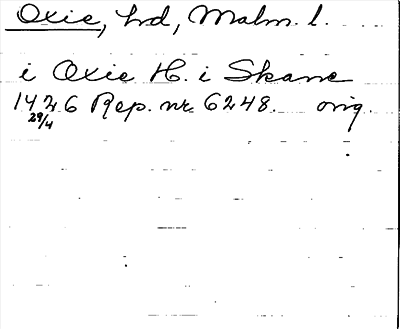 Oxie, hd, Malm. l.
i Oxie H. i Skane
1426 Rep. nr. 6248. orig.
29/4